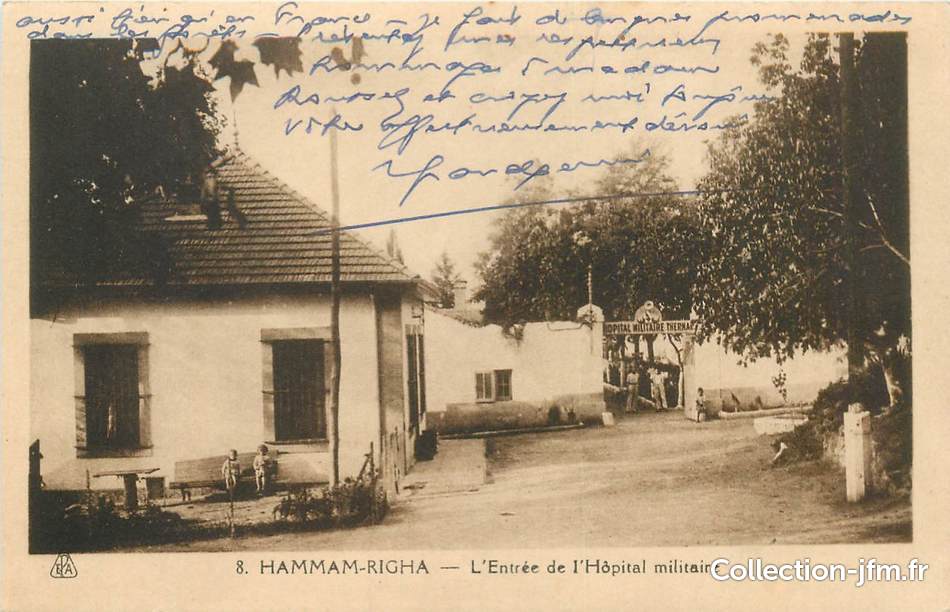 aussi bien qu'en France – Je fais de longues promenades
dans les forêts – Présentez mes respectueux
hommages à madame
Roussel et croyez moi toujours
votre affectueusement dévoué
HOPITAL MILITAIRE THERMAL
8. HAMMAM-RIGHA — L'Entrée de l'Hôpital militaire
Collection-jfm.fr